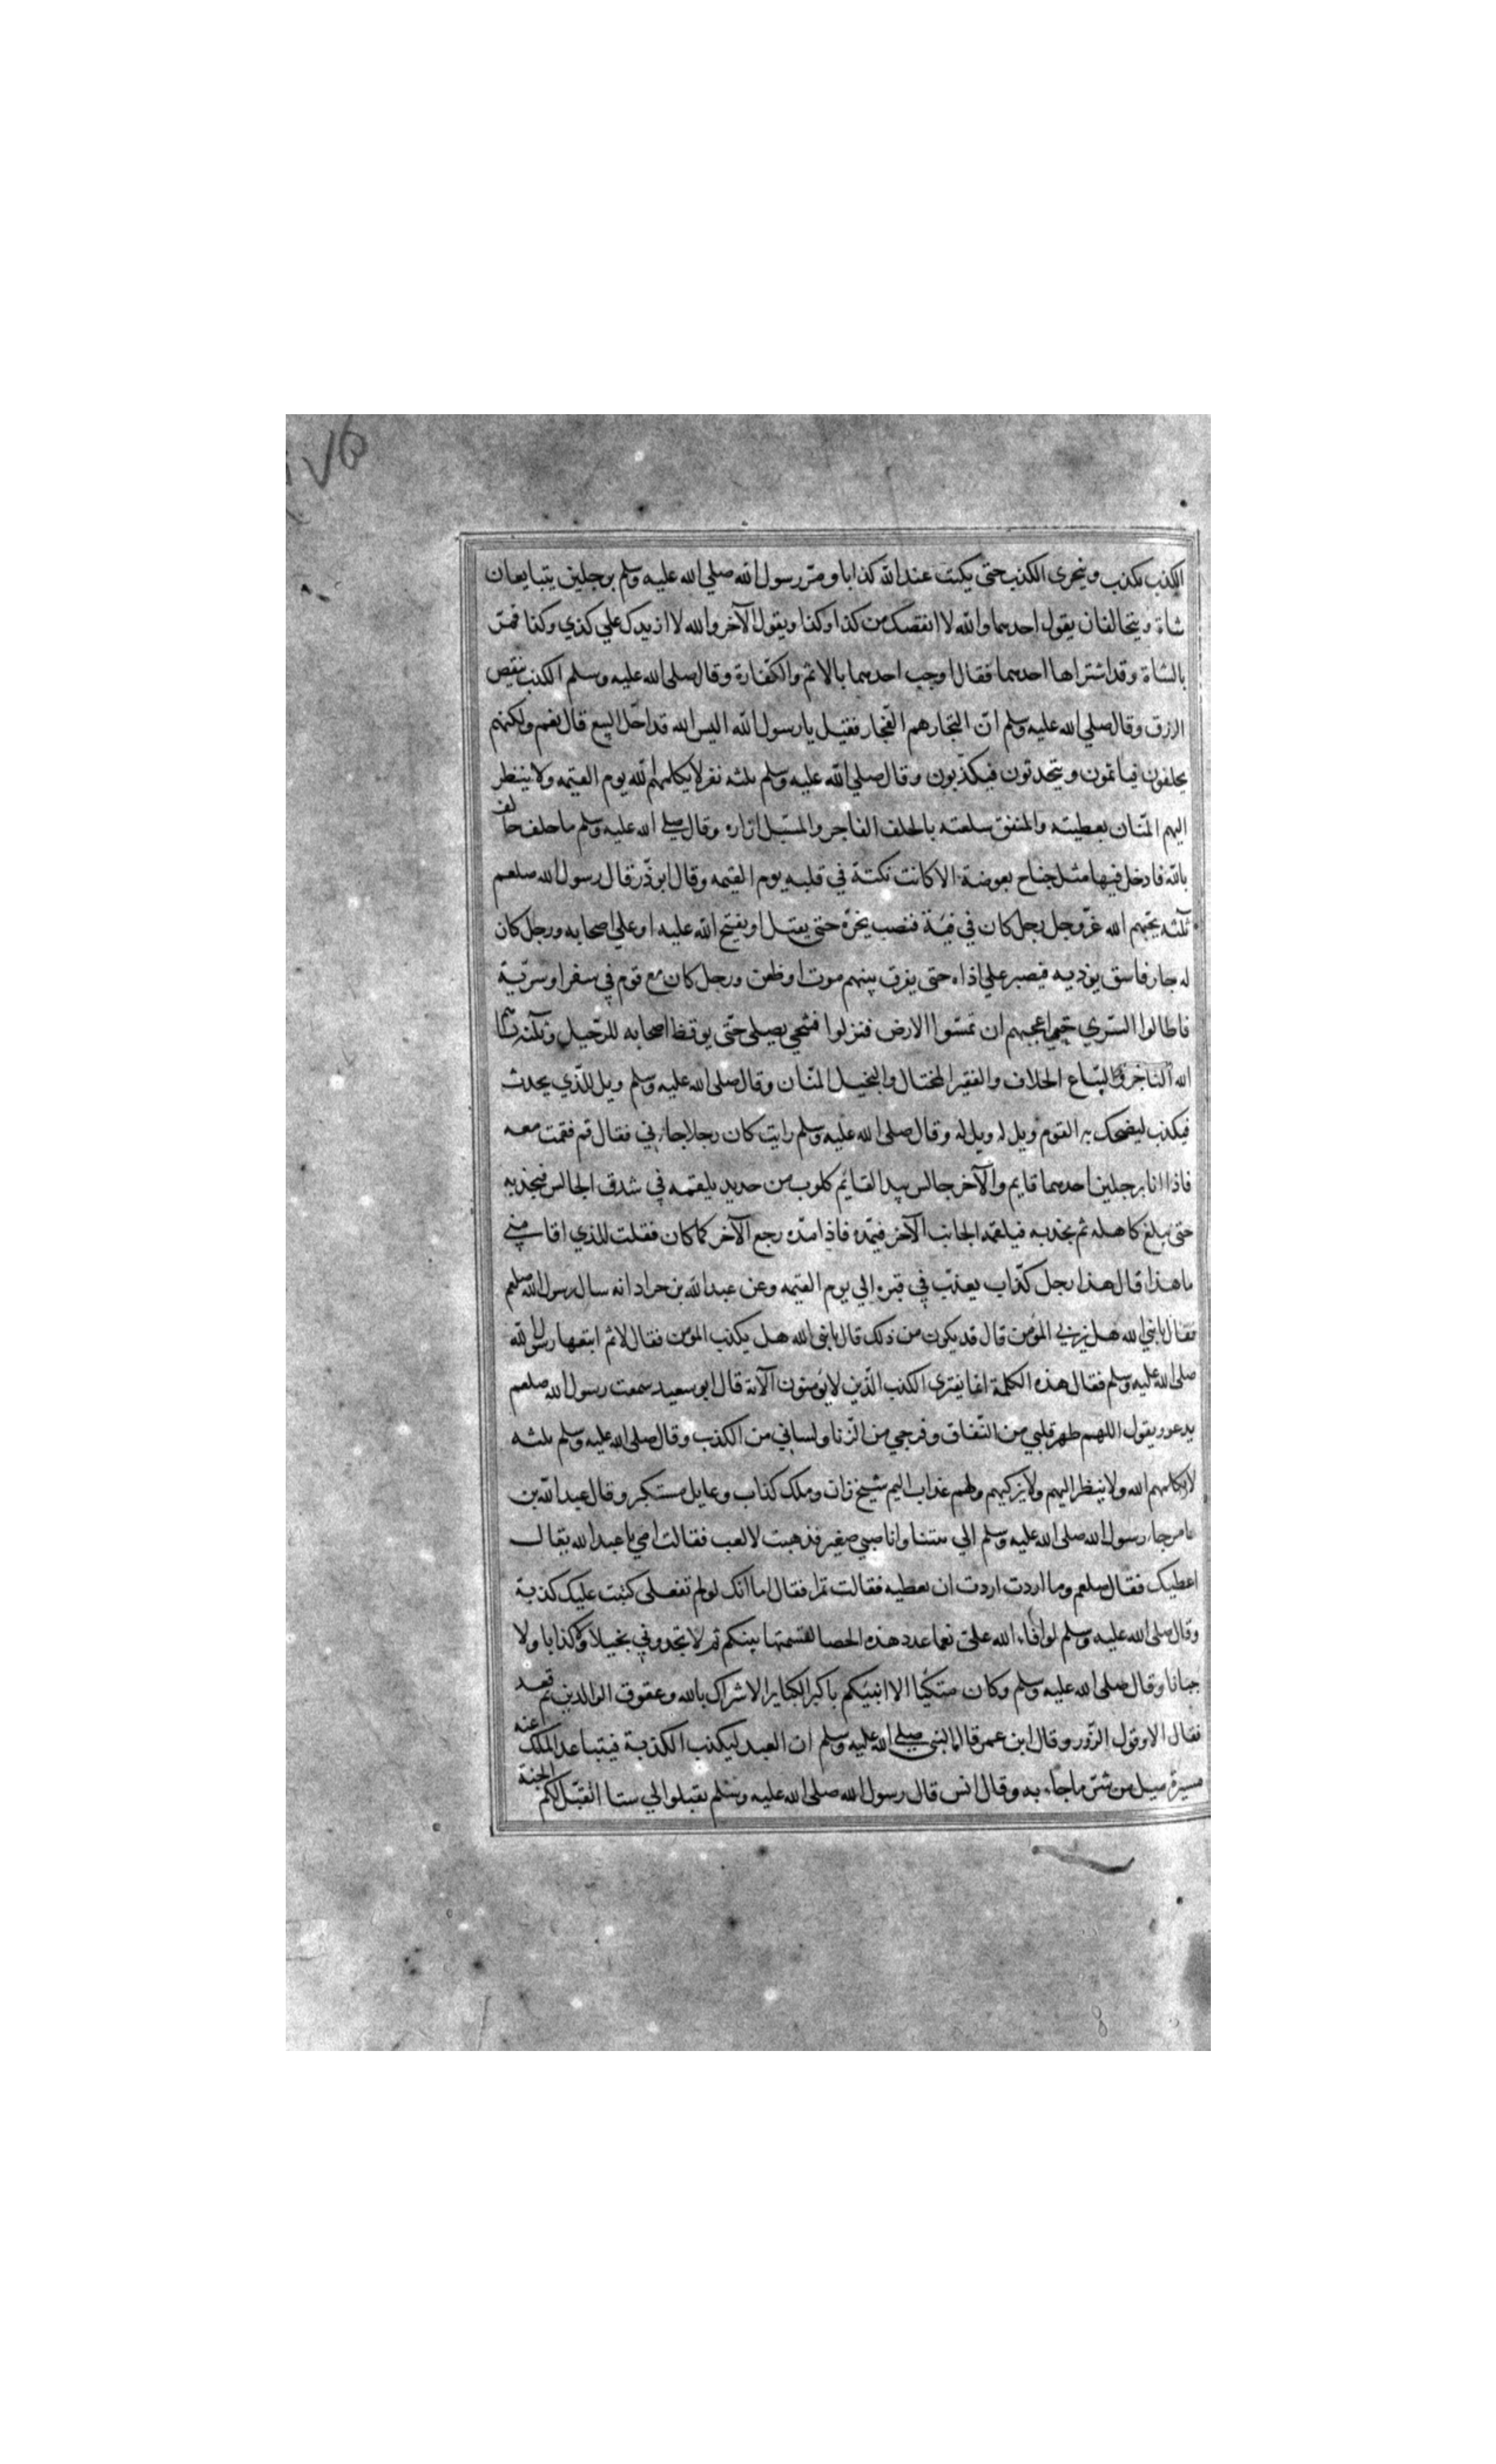 ١٧٥
الكذب يكذب ويتحرى الكذب حتى يكتب عند الله كذابا ومر رسول الله صلي الله عليه وسلم برجلين يتبايعان
شاة ويتحالفان يقول احدهما والله لا انقصك من كذا وكذا ويقول الآخر والله لا ازيدك علي كذي وكذا فمر
بالشاة وقد اشتراها احدهما فقال اوجب احدهما بالاثم والكفارة وقال صلى الله عليه وسلم الكذب ينقص
الرزق وقال صلي الله عليه وسلم ان التجار هم الفجار فقيل يا رسول الله اليس الله قد احل البيع قال نعم ولكنهم
يحلفون فياثمون ويتحدثون فيكذبون وقال صلي الله عليه وسلم ثلثه نفر لا يكلمهم الله يوم القيمه ولا ينظر
اليهم المنان بعطيته والمنفق سلعته بالحلف الفاجر والمسبل ازاره وقال صلي الله عليه وسلم ما حلف حالف
بالله فادخل فيها مثل جناح بعوضة الا كانت نكتة في قلبه يوم القيمه وقال ابو ذر قال رسول الله صلعم
ثلثه يحبهم الله عز وجل رجل كان في فئة فنصب نحره حتى يقتل او يفتح الله عليه او علي اصحابه ورجل كان
له جار فاسق يؤذيه فيصبر علي اذاه حتى يفرق بينهم موت او ظعن ورجل كان مع قوم في سفر او سرية
فاطالوا السري حتى اعجبهم ان تمسوا الارض فنزلوا فتنحي يصلى حتى يوقظ اصحابه للرحيل وثلثه يشنأهم
الله التاجر والبياع الحلاف والفقير المختال والبخيل المنان وقال صلى الله عليه وسلم ويل للذي يحدث
فيكذب ليضحك به القوم ويل له ويل له وقال صلى الله عليه وسلم رايت كان رجلا جاءني فقال قم فقمت معه
فاذا انا برجلين احدهما قايم والآخر جالس بيد القائم كلوب من حديد يلقمه في شدق الجالس فيجذبه
حتى يبلغ كاهله ثم يجذبه فيلقمه الجانب الآخر فيمده فاذا مده رجع الآخر كما كان فقلت للذي اقامني
ما هذا قال هذا رجل كذاب يعذب في قبره الي يوم القيمه وعن عبد الله بن جراد انه سال رسول الله صلعم
فقال يا نبي الله هل يزني المؤمن قال قد يكون من ذلك قال يا نبي الله هل يكذب المؤمن فقال لا ثم اتبعها رسول الله
صلى الله عليه وسلم فقال هذه الكلمة انما يفترى الكذب الذين لا يؤمنون الآية قال ابو سعيد سمعت رسول الله صلعم
يدعو ويقول اللهم طهر قلبي من النفاق وفرجي من الزنا ولساني من الكذب وقال صلى الله عليه وسلم ثلثه
لا يكلمهم الله ولا ينظر اليهم ولا يزكيهم ولهم عذاب اليم شيخ زان وملك كذاب وعايل مستكبر وقال عبد الله بن
عامر جاء رسول الله صلى الله عليه وسلم الي بيتنا وانا صبي صغير فذهبت لالعب فقالت امي يا عبد الله تعال
اعطيك فقال صلعم وما اردت ان تعطيه فقالت تمرا فقال اما انك لو لم تفعلى كتبت عليك كذبة
وقال صلى الله عليه وسلم لو افاء الله علي نعما عدد هذه الحصا لقسمتها بينكم ثم لا تجدوني بخيلا ولا كذابا ولا
جبانا وقال صلى الله عليه وسلم وكان متكيا الا انبئكم باكبر الكباير الاشراك بالله وعقوق الوالدين ثم قعد
فقال الا وقول الزور وقال ابن عمر قال النبي صلي الله عليه وسلم ان العبد ليكذب الكذبة فيتباعد الملك عنه
مسيرة ميل من نتن ما جاء به وقال انس قال رسول الله صلى الله عليه وسلم تقبلوا الي ستا اتقبل لكم الجنة